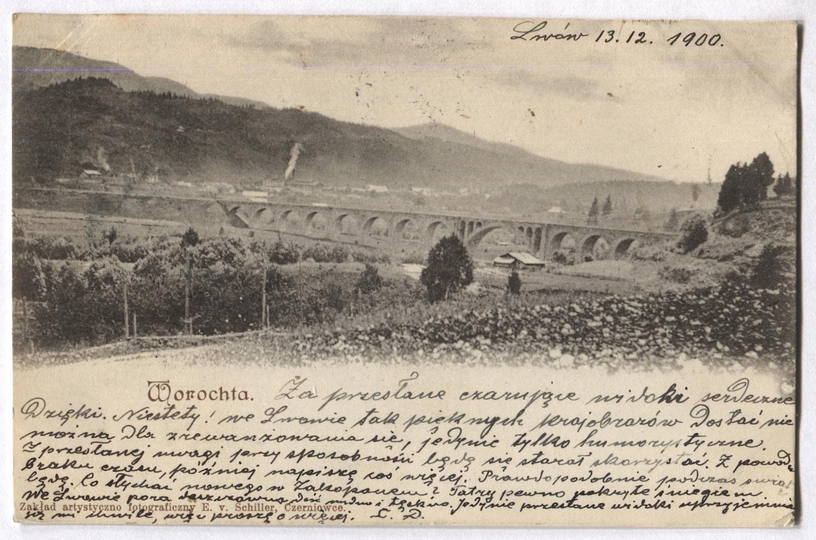 Lwów 13.12. 1900.
Worochta. Za przesłane czarujące widoki serdeczne
Dzięki. Niestety! we Lwowie tak pięknych krajobrazów Dostać nie
można Dla zrewanżowania się, jedynie tylko humorystyczne.
Z przesłanej uwagi przy sposobności będę się starał skorzystać. Z powodu
braku czasu, później napiszę coś więcej. Prawdopodobnie podczas świąt
będę. Co słychać nowego w Zakopanem? Tatry pewno pokryte śniegiem
We Lwowie pora deszczowa, dość nudno i tęskno. Jedynie przesłane widoki uprzyjemniają
Zakład artystyczno fotograficzny E. v. Schiller, Czerniowce.
mi chwile, więc proszę o więcej.